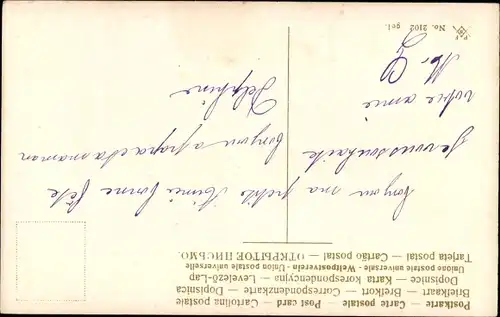 Postkarte — Carte postale — Post card — Cartolina postale
Briefkaart — Brefkort — Correspondenzkarte — Dopisnica
Dopisnice — Karta korespondencyjna — Levelező-Lap
Union postale universelle - Weltpostverein - Union postale universelle
Tarjeta postal — Cartão postal — ОТКРЫТОЕ ПИСЬМО.
bonjour ma petite Aimée bonne fête
je vous souhaite
bonjour a papa et a maman
votre amie
Delphine
No. 2102 gel.